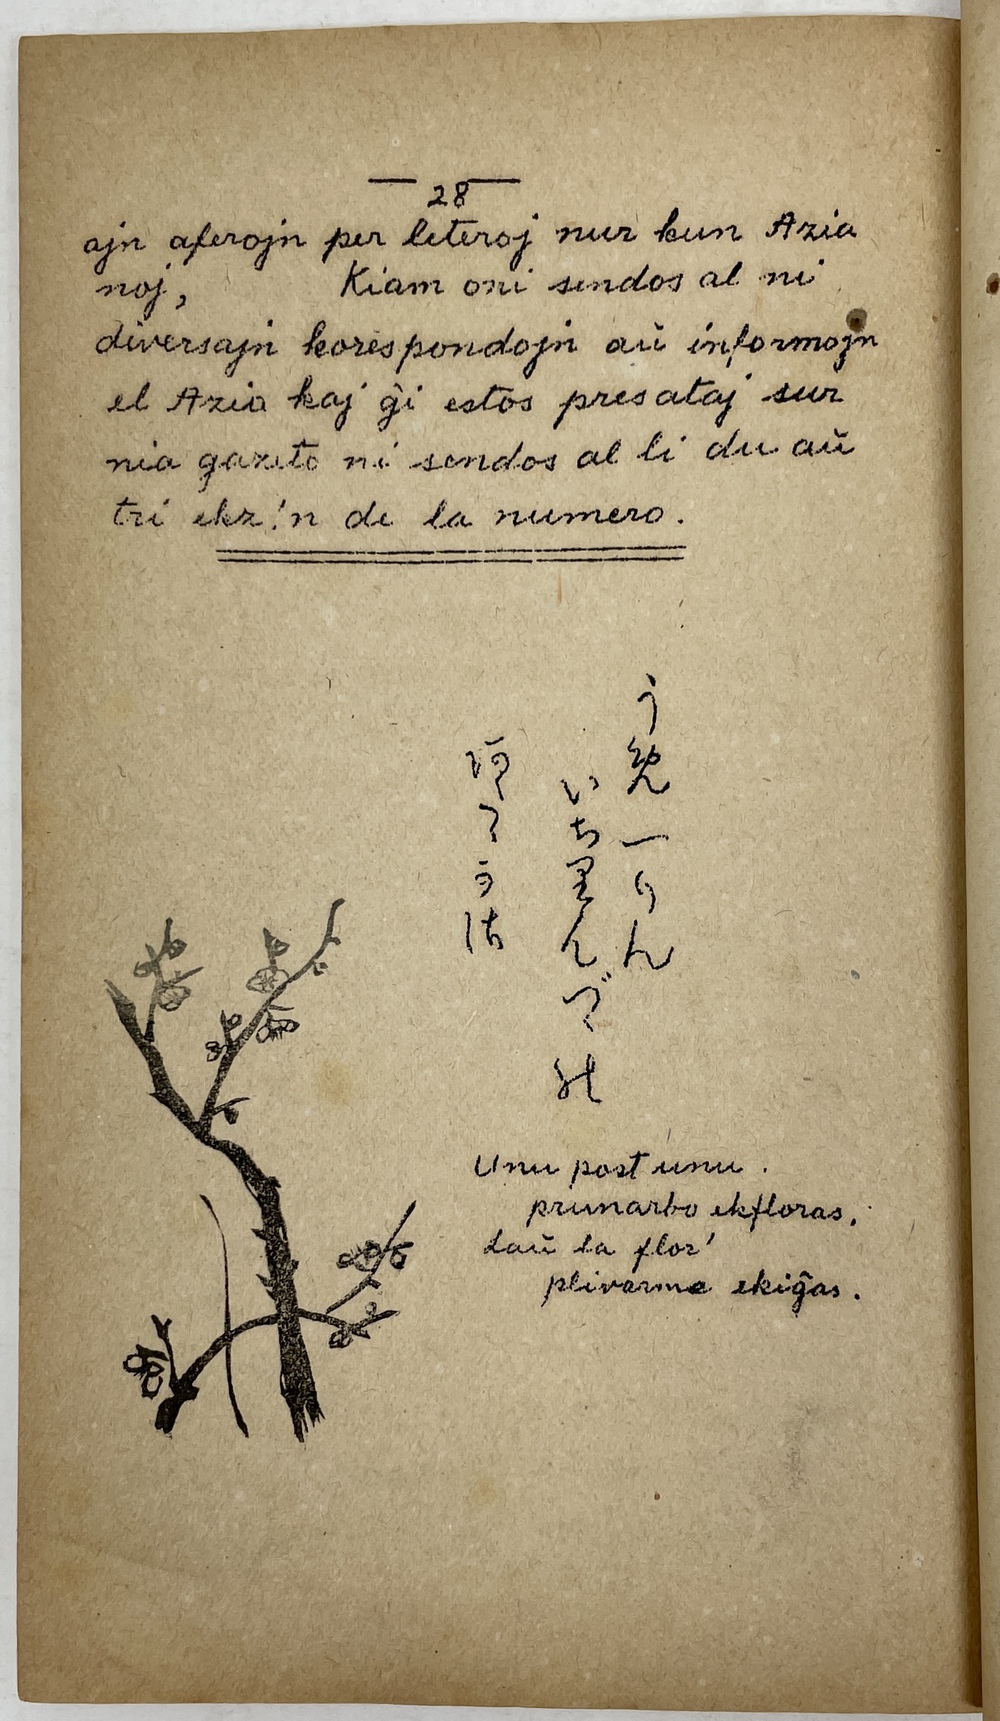 28
ajn aferojn per leteroj nur kun Azia
noj, Kiam oni sendos al ni
diversajn korespondojn aŭ informojn
el Azia kaj ĝi estos presataj sur
nia gazeto ni sendos al li du aŭ
tri ekz'n de la numero.
う免一りん
いち里んづゝ能
阿たゝかさ
Unu post unu.
prunarbo ekfloras,
Laŭ la flor'
plivarme ekiĝas.